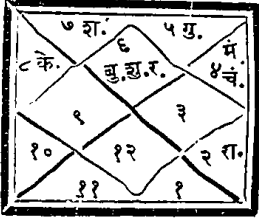 ७ श. ५ गु.
६
८ के. बु. शु. र. मं.
४ चं.
९ ३
१० १२ २ रा.
११ १